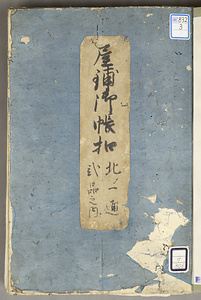 屋鋪御帳扣
北ノ一通
弐品之内
892
3